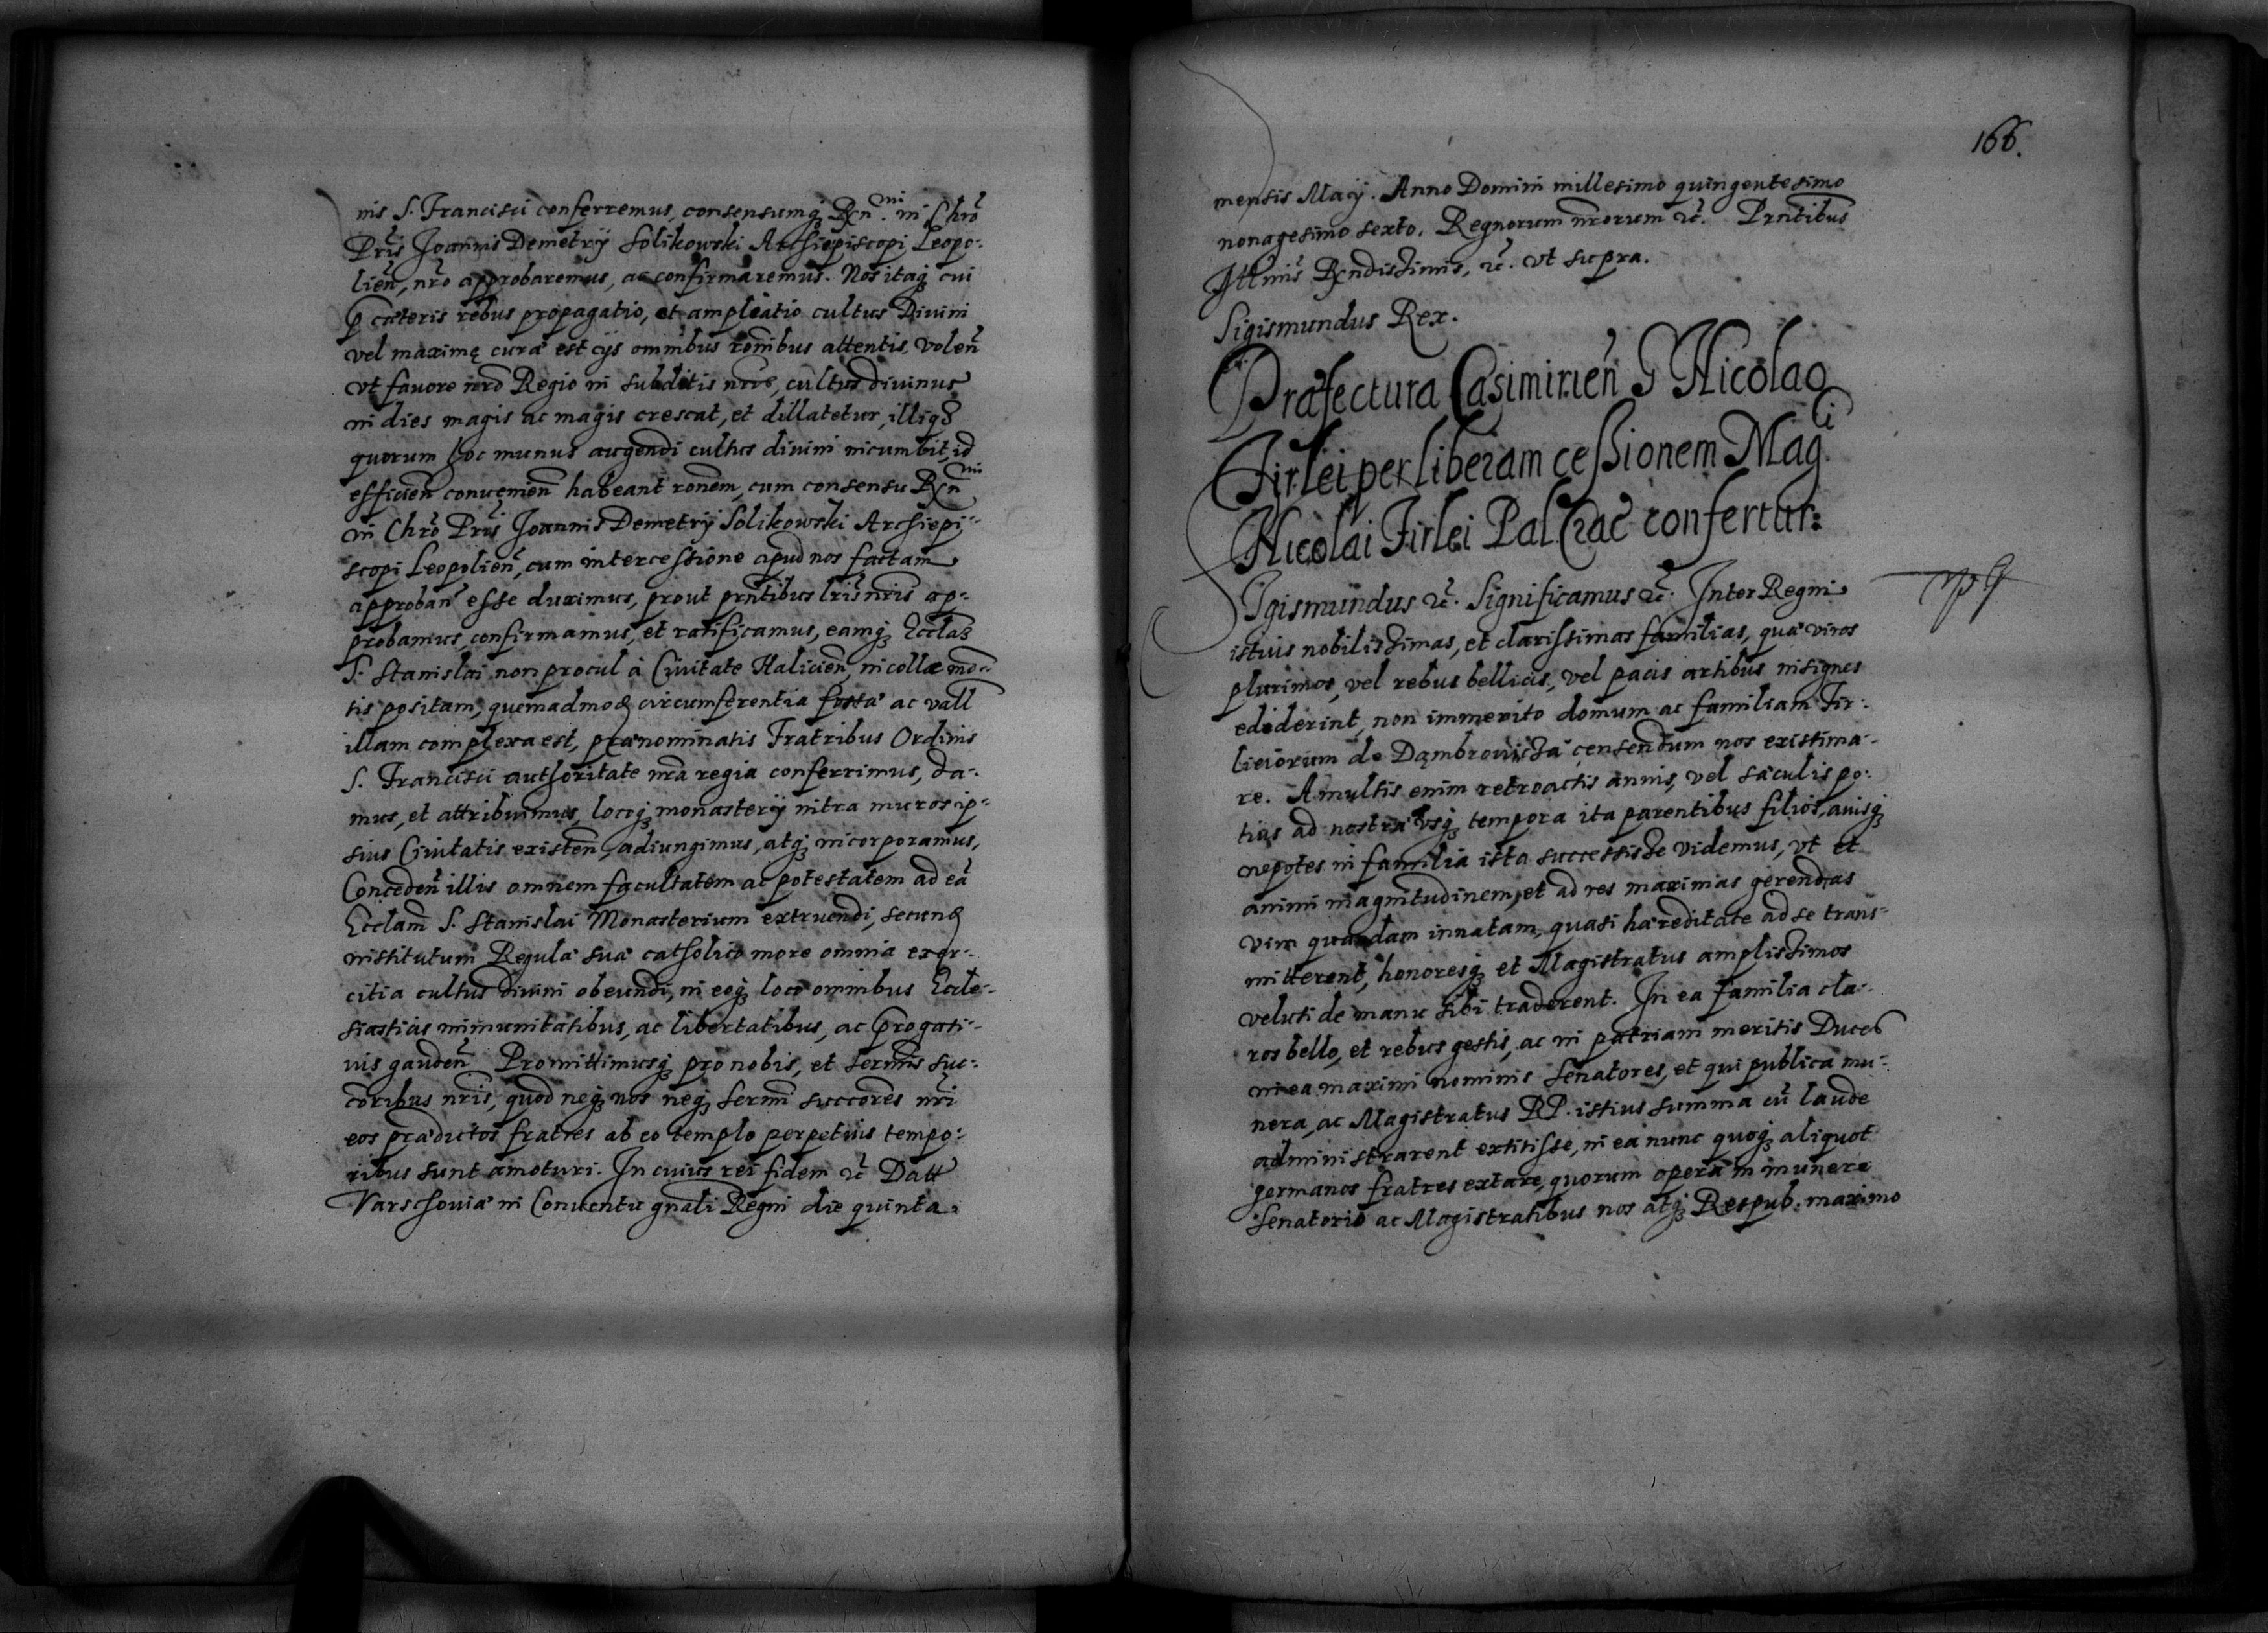 nis S. Francisci conferremus, consensumq3 Rxn.ni in Chro͂
Pris͂ Joannis Demetrÿ Solikowski Archiepiscopi Leopo-
lien͂, nr͂o approbaremus, ac confirmaremus. Nos itaq3 cui
p cæteris rebus propagatio, et ampliatio cultus Divini
vel maximę curæ est ijs omnibus ro͂nibus attentis, volen͂
vt favore nr͂o Regio in subditis nr͂is, cultus divinus
in dies magis ac magis crescat, et dillatetur, illiq3
quorum hoc munus augendi cultus divini incumbit, id
efficien͂ convenien͂ habeant ro͂nem, cum consensu Rxnni
in Chro͂ Pris͂ Joannis Demetrÿ Solikowski Archiepi-
scopi Leopolien͂, cum intercessione apud nos factam
approban͂ esse duximus, prout prn͂tibus lr͂is nr͂is ap-
probamus, confirmamus, et ratificamus, eamq3 Eccla͂3
S. Stanislai non procul à Civitate Halicien͂, in colle mon-
tis positam, quemadmod circumferentia fossæ ac vall
illam complexa est, prænominatis Fratribus Ordinis
S. Francisci authoritate nr͂a regia conferrimus, da-
mus, et attribuimus, locoq3 monasterÿ intra muros ip-
sius Civitatis existen͂, adiungimus, atq3 incorporamus,
Conceden͂ illis omnem facultatem ac potestatem ad ea͂
Eccla͂m S. Stanislai Monasterium extruendi, secund
institutum Regulæ suæ catholico more omnia exer-
citia cultus divini obeundi, in eoq3 loco omnibus Eccle-
siasticis immunitatibus, ac libertatibus, ac progati-
vis gauden͂ Promittimusq3 pro nobis, et Sermis͂ suc-
co͂ribus nr͂is, quod neq3 nos neq3 sermi͂ succo͂res nr͂i
eos prædictos fratres ab eo templo perpetuis tempo-
ribus sunt amoturi. In cuius rei fidem &c͂ Datt
Varschoviæ in Conventu gn͂ali Regni die quinta
166.
mensis Maÿ. Anno Domini millesimo quingentesimo
nonagesimo sexto. Regnorum nr͂orum &c͂. Prn͂tibus
Illmis͂ Rxndissimis, &c͂. vt supra.
Sigismundus Rex.
Præfectura Casimirien͂ G Nicolao
Firlei per liberam cessionem Mag.ci
Nicolai Firlei Pal Crac͂ confertur:
Sigismundus &c͂. Significamus &c͂. Inter Regni
istius nobilissimas, et clarissimas familias, quæ viros
plurimos, vel rebus bellicis, vel pacis artibus insignes
ediderint, non immerito domum ac familiam Fir-
lieiorum de Dąmbrowicza censendum nos existima-
re. A multis enim retroactis annis, vel sæculis po-
tius ad nostra vsq3 tempora ita parentibus filios, avisq3
nepotes in familia ista successisse videmus, vt et
animi magnitudinem, et ad res maximas gerendas
vim quandam innatam, quasi hæreditate ad se trans-
mitterent, honoresq3 et Magistratus amplissimos
veluti de manu sibi traderent. In ea familia cla-
ros bello, et rebus gestis, ac in patriam meritis Duces
in ea maximi nominis Senatores, et qui publica mu-
nera, ac Magistratus RP. istius summa cu͂ laude
administrarent extitisse, in ea nunc quoq3 aliquot
germanos fratres extare, quorum opera in munere
Senatorio ac Magistratibus nos atq3 Respub. maximo